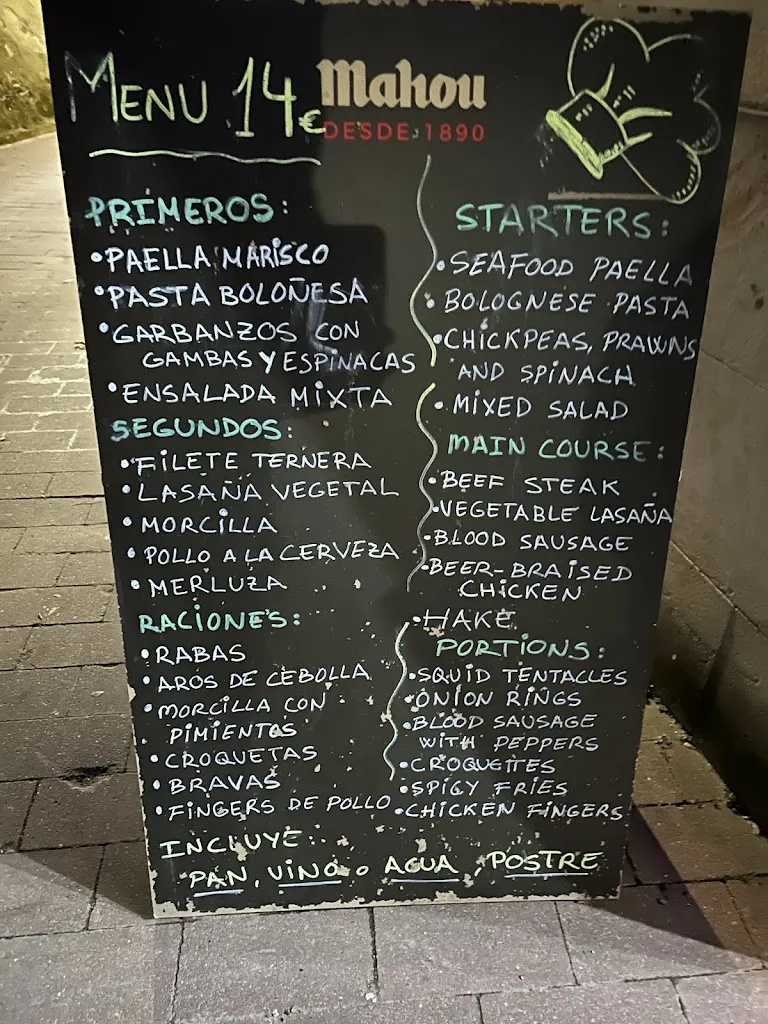 MENU 14€
Mahou
DESDE 1890
PRIMEROS:
•PAELLA MARISCO
•PASTA BOLOÑESA
•GARBANZOS CON
GAMBAS Y ESPINACAS
•ENSALADA MIXTA
SEGUNDOS:
•FILETE TERNERA
•LASAÑA VEGETAL
•MORCILLA
•POLLO A LA CERVEZA
•MERLUZA
RACIONES:
•RABAS
•AROS DE CEBOLLA
•MORCILLA CON
PIMIENTOS
•CROQUETAS
•BRAVAS
•FINGERS DE POLLO
STARTERS:
•SEAFOOD PAELLA
•BOLOGNESE PASTA
•CHICKPEAS, PRAWNS
AND SPINACH
•MIXED SALAD
MAIN COURSE:
•BEEF STEAK
•VEGETABLE LASAÑA
•BLOOD SAUSAGE
•BEER-BRAISED
CHICKEN
•HAKE
PORTIONS:
•SQUID TENTACLES
•ONION RINGS
•BLOOD SAUSAGE
WITH PEPPERS
•CROQUETTES
•SPICY FRIES
•CHICKEN FINGERS
INCLUYE:
PAN, VINO o AGUA, POSTRE